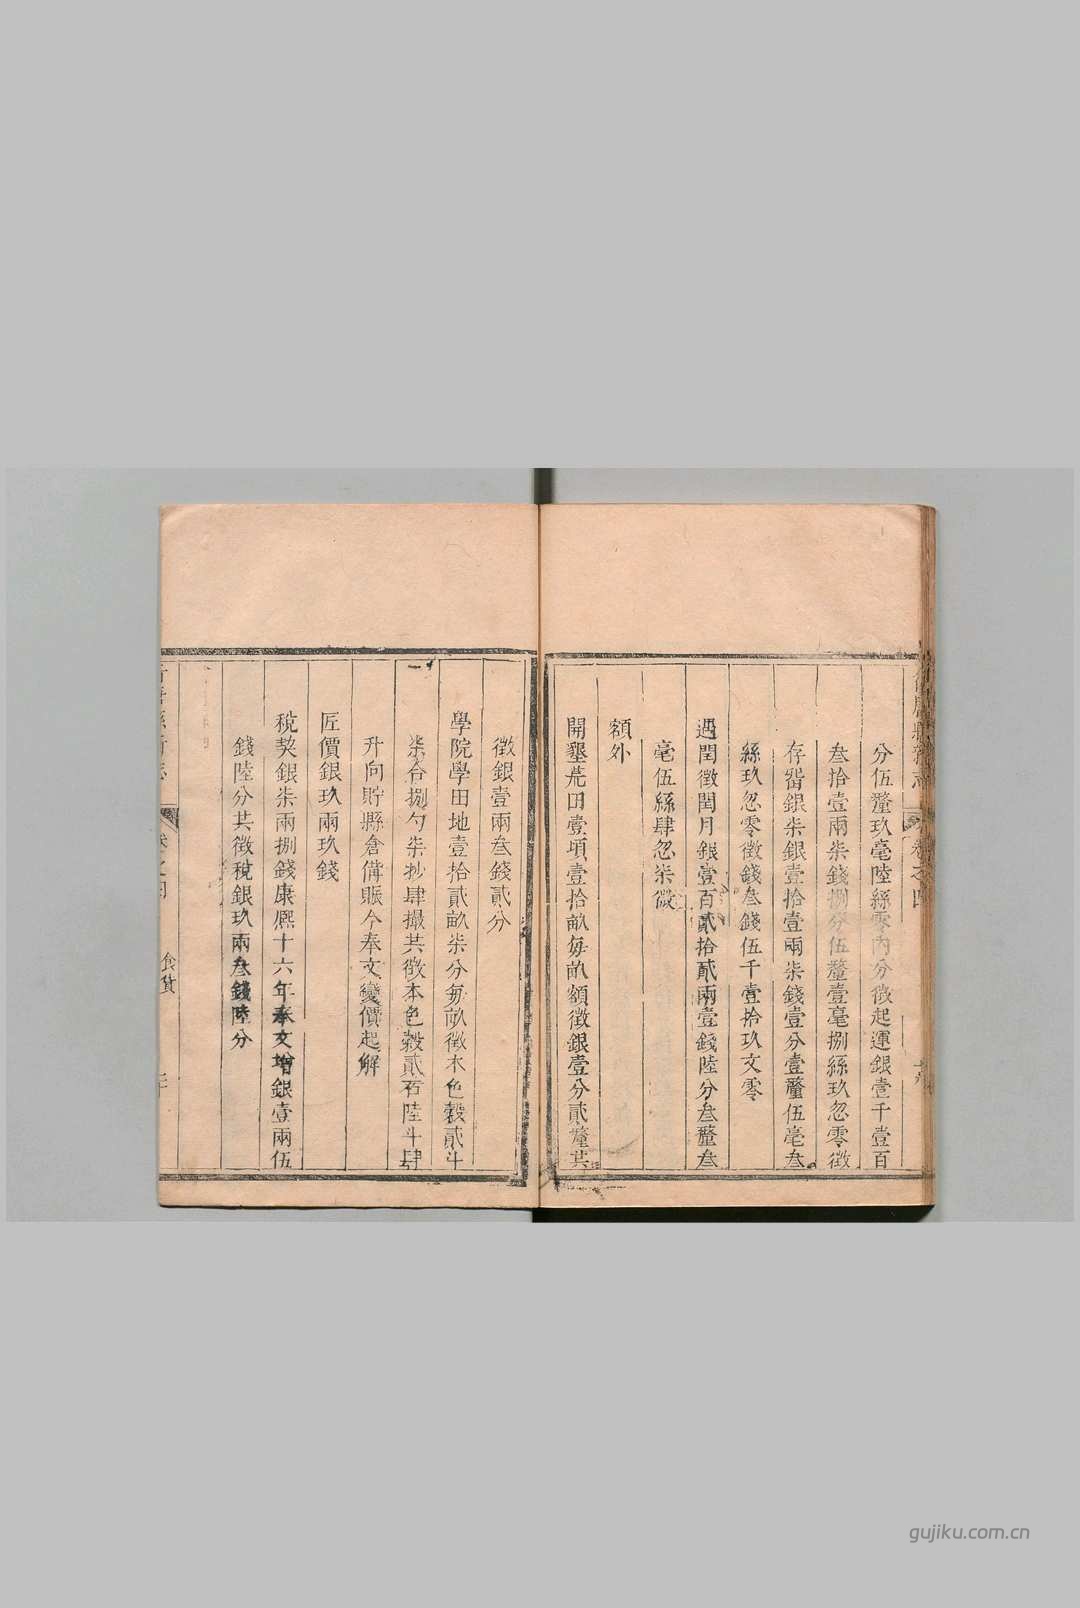 分伍釐玖毫陸絲零內分徵起運銀壹千壹百
叁拾壹兩柒錢捌分伍釐壹毫捌絲玖忽零徵
存畱銀柒銀壹拾壹兩柒錢壹分壹釐伍毫叁
絲玖忽零徵錢叁錢伍千壹拾玖文零
遇閏徵閏月銀壹百貳拾貳兩壹錢陸分叁釐叁
毫伍絲肆忽柒微
額外
開墾荒田壹項壹拾畝每畝額徵銀壹分貳釐共
徵銀壹兩叁錢貳分
學院學田地壹拾貳畝柒分每畝徵本色穀貳斗
柒合捌勺柒抄肆撮共徵本色穀貳石陸斗肆
升向貯縣倉備賑今奉文變價起解
匠價銀玖兩玖錢
稅契銀柒兩捌錢康熙十六年奉文增銀壹兩伍
錢陸分共徵稅銀玖兩叁錢陸分
卷之四
食貨
gujiku.com.cn